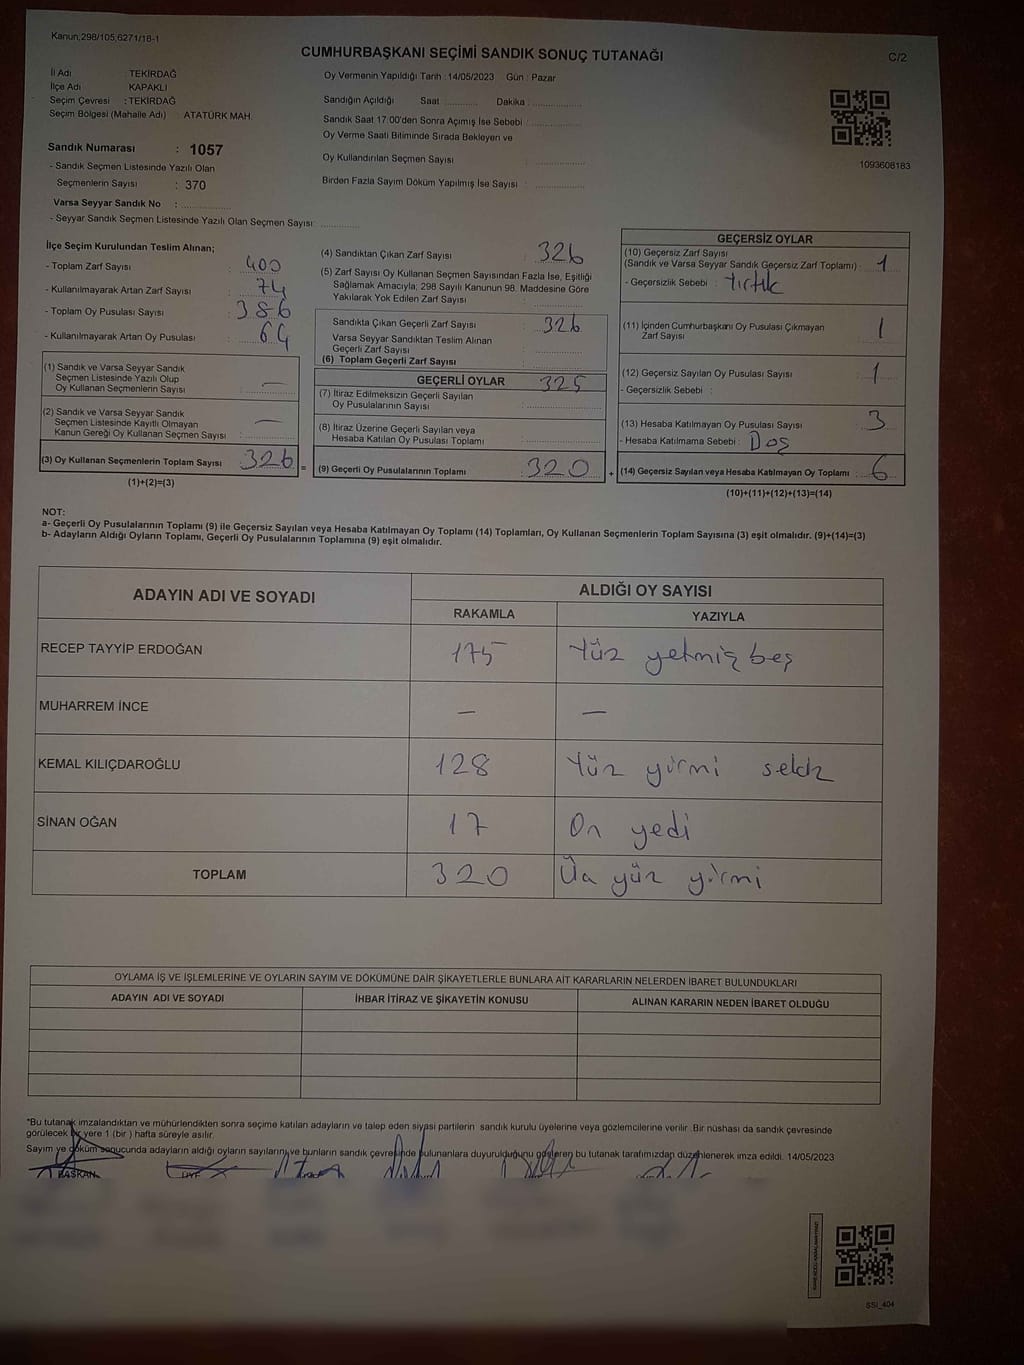 Kanun,298/105,6271/18-1
CUMHURBAŞKANI SEÇİMİ SANDIK SONUÇ TUTANAĞI
C/2
İl Adı : TEKİRDAĞ
İlçe Adı KAPAKLI
Seçim Çevresi : TEKİRDAĞ
Seçim Bölgesi (Mahalle Adı) : ATATÜRK MAH.
Sandık Numarası : 1057
- Sandık Seçmen Listesinde Yazılı Olan
Seçmenlerin Sayısı : 370
Varsa Seyyar Sandık No :
- Seyyar Sandık Seçmen Listesinde Yazılı Olan Seçmen Sayısı:
Oy Vermenin Yapıldığı Tarih : 14/05/2023 Gün : Pazar
Sandığın Açıldığı Saat Dakika
Sandık Saat 17:00'den Sonra Açımış İse Sebebi
Oy Verme Saati Bitiminde Sırada Bekleyen ve
Oy Kullandırılan Seçmen Sayısı :
Birden Fazla Sayım Döküm Yapılmış İse Sayısı :
1093608183
İlçe Seçim Kurulundan Teslim Alınan;
- Toplam Zarf Sayısı : 400
- Kullanılmayarak Artan Zarf Sayısı : 74
- Toplam Oy Pusulası Sayısı : 386
- Kullanılmayarak Artan Oy Pusulası : 64
(1) Sandık ve Varsa Seyyar Sandık
Seçmen Listesinde Yazılı Olup
Oy Kullanan Seçmenlerin Sayısı : —
(2) Sandık ve Varsa Seyyar Sandık
Seçmen Listesinde Kayıtlı Olmayan
Kanun Gereği Oy Kullanan Seçmen Sayısı : —
(3) Oy Kullanan Seçmenlerin Toplam Sayısı 326 =
(1)+(2)=(3)
(4) Sandıktan Çıkan Zarf Sayısı 326
(5) Zarf Sayısı Oy Kullanan Seçmen Sayısından Fazla İse, Eşitliği
Sağlamak Amacıyla; 298 Sayılı Kanunun 98. Maddesine Göre
Yakılarak Yok Edilen Zarf Sayısı
Sandıkta Çıkan Geçerli Zarf Sayısı 326
Varsa Seyyar Sandıktan Teslim Alınan
Geçerli Zarf Sayısı
(6) Toplam Geçerli Zarf Sayısı
GEÇERLİ OYLAR 325
(7) İtiraz Edilmeksizin Geçerli Sayılan
Oy Pusulalarının Sayısı
(8) İtiraz Üzerine Geçerli Sayılan veya
Hesaba Katılan Oy Pusulası Toplamı
(9) Geçerli Oy Pusulalarının Toplamı 320 +
GEÇERSİZ OYLAR
(10) Geçersiz Zarf Sayısı
(Sandık ve Varsa Seyyar Sandık Geçersiz Zarf Toplamı) : 1
- Geçersizlik Sebebi : Yırtık
(11) İçinden Cumhurbaşkanı Oy Pusulası Çıkmayan
Zarf Sayısı 1
(12) Geçersiz Sayılan Oy Pusulası Sayısı 1
- Geçersizlik Sebebi :
(13) Hesaba Katılmayan Oy Pusulası Sayısı 3
- Hesaba Katılmama Sebebi : Boş
(14) Geçersiz Sayılan veya Hesaba Katılmayan Oy Toplamı 6
(10)+(11)+(12)+(13)=(14)
NOT:
a- Geçerli Oy Pusulalarının Toplamı (9) ile Geçersiz Sayılan veya Hesaba Katılmayan Oy Toplamı (14) Toplamları, Oy Kullanan Seçmenlerin Toplam Sayısına (3) eşit olmalıdır. (9)+(14)=(3)
b- Adayların Aldığı Oyların Toplamı, Geçerli Oy Pusulalarının Toplamına (9) eşit olmalıdır.
ADAYIN ADI VE SOYADI
ALDIĞI OY SAYISI
RAKAMLA YAZIYLA
RECEP TAYYİP ERDOĞAN 175 Yüz yetmiş beş
MUHARREM İNCE — —
KEMAL KILIÇDAROĞLU 128 Yüz yirmi sekiz
SİNAN OĞAN 17 On yedi
TOPLAM 320 Üç yüz yirmi
OYLAMA İŞ VE İŞLEMLERİNE VE OYLARIN SAYIM VE DÖKÜMÜNE DAİR ŞİKAYETLERLE BUNLARA AİT KARARLARIN NELERDEN İBARET BULUNDUKLARI
ADAYIN ADI VE SOYADI İHBAR İTİRAZ VE ŞİKAYETİN KONUSU ALINAN KARARIN NEDEN İBARET OLDUĞU
*Bu tutanak imzalandıktan ve mühürlendikten sonra seçime katılan adayların ve talep eden siyasi partilerin sandık kurulu üyelerine veya gözlemcilerine verilir .Bir nüshası da sandık çevresinde
görülecek bir yere 1 (bir ) hafta süreyle asılır.
Sayım ve döküm sonucunda adayların aldığı oyların sayılarını ve bunların sandık çevresinde bulunanlara duyurulduğunu gösteren bu tutanak tarafımızdan düzenlenerek imza edildi. 14/05/2023
BAŞKAN ÜYE
SSI_404